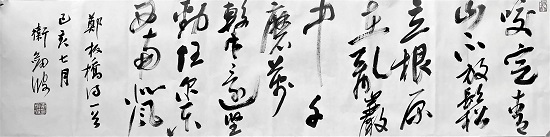 咬定青
山不放鬆
立根原
在亂巖
中千
磨萬
擊還堅
勁任爾東
西南北風
鄭板橋詩一首
己亥七月
衛